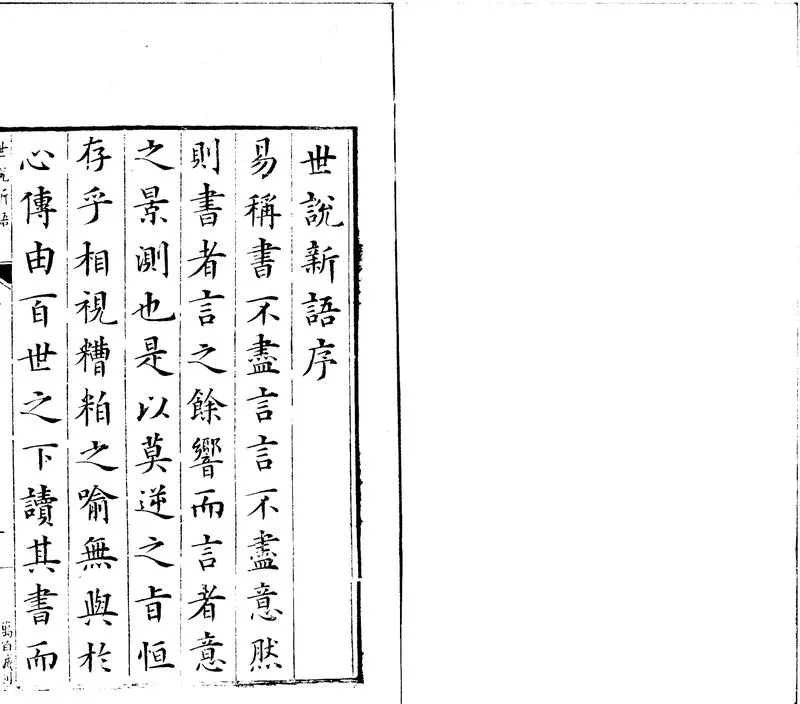 世說新語序
易稱書不盡言言不盡意然
則書者言之餘響而言者意
之景測也是以莫逆之旨恒
存乎相視糟粕之喻無與於
心傳由百世之下讀其書而
世說新語